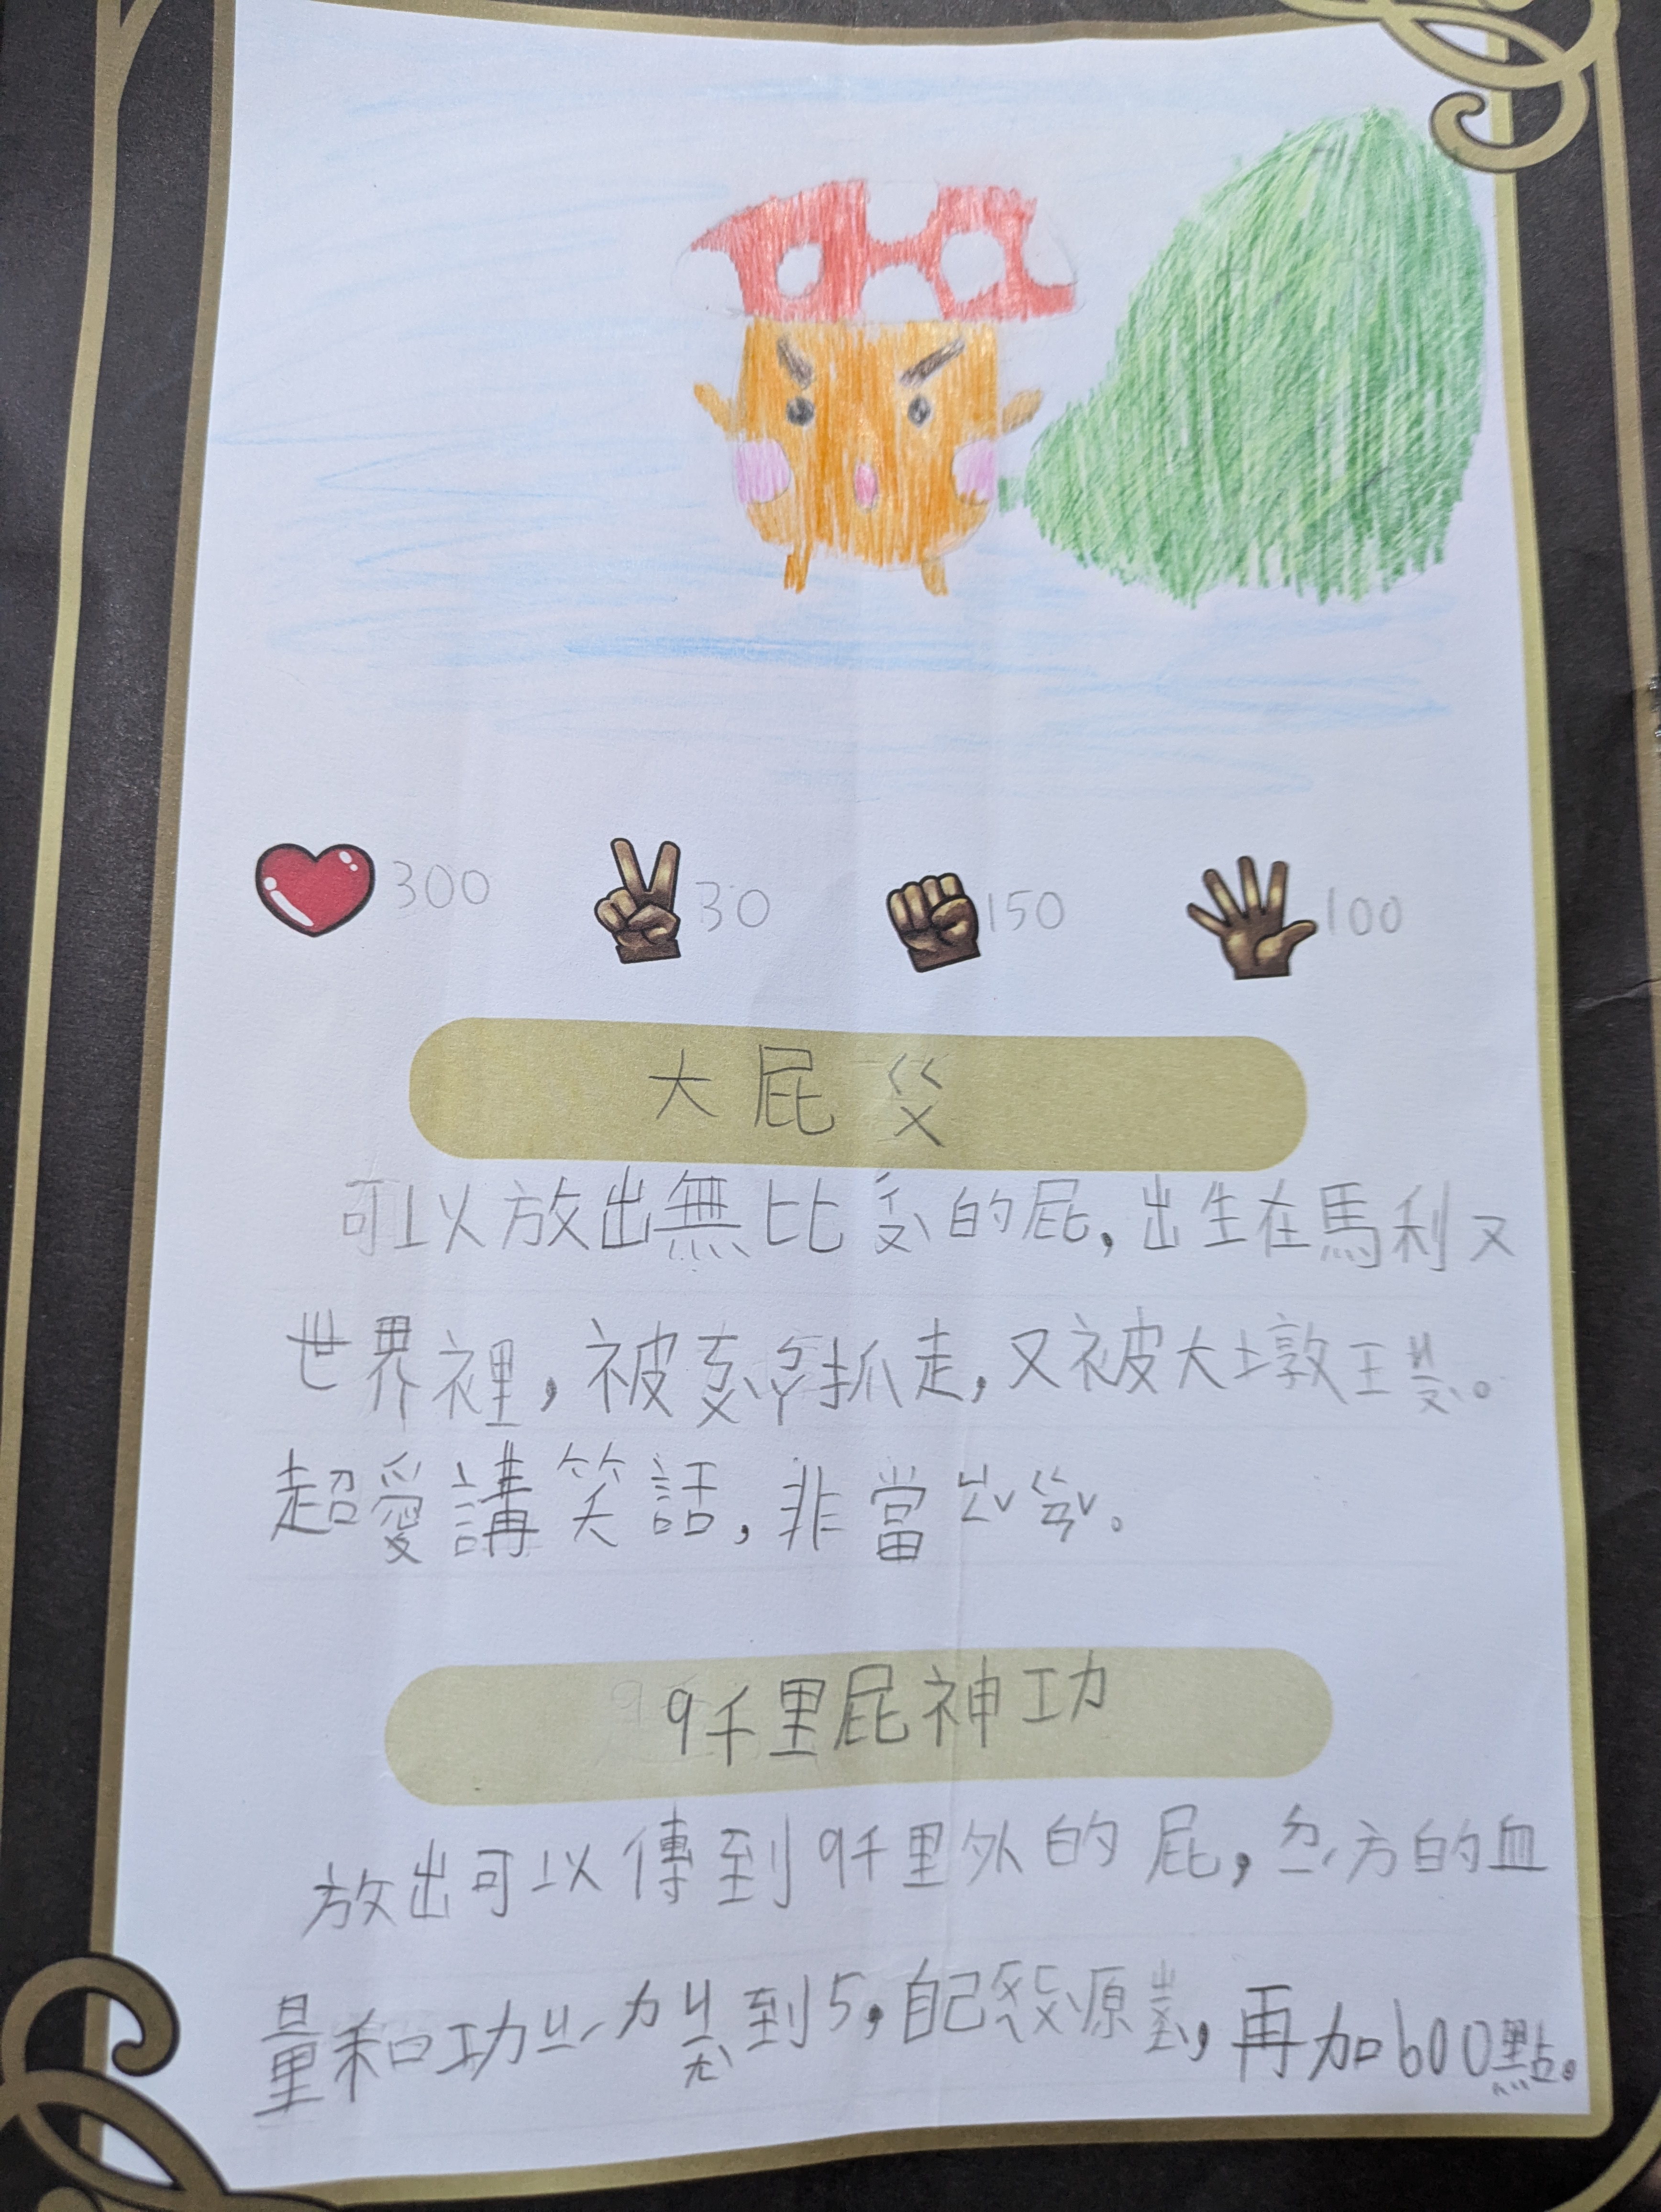 300 30 150 100
大屁ㄍㄨ
可以放出無比ㄔㄡˋ的屁,出生在馬利ㄡ
世界裡,被ㄎㄨˋㄅㄚ抓走,又被大墩王ㄐㄧㄡˋ。
超愛講笑話,非當ㄩㄥˇㄍㄢˇ。
9千里屁神功
放出可以傳到9千里外的屁,ㄉㄧˊ方的血
量和功ㄐㄧˊ力ㄐㄧㄤˋ到5,自己源,再加600點。